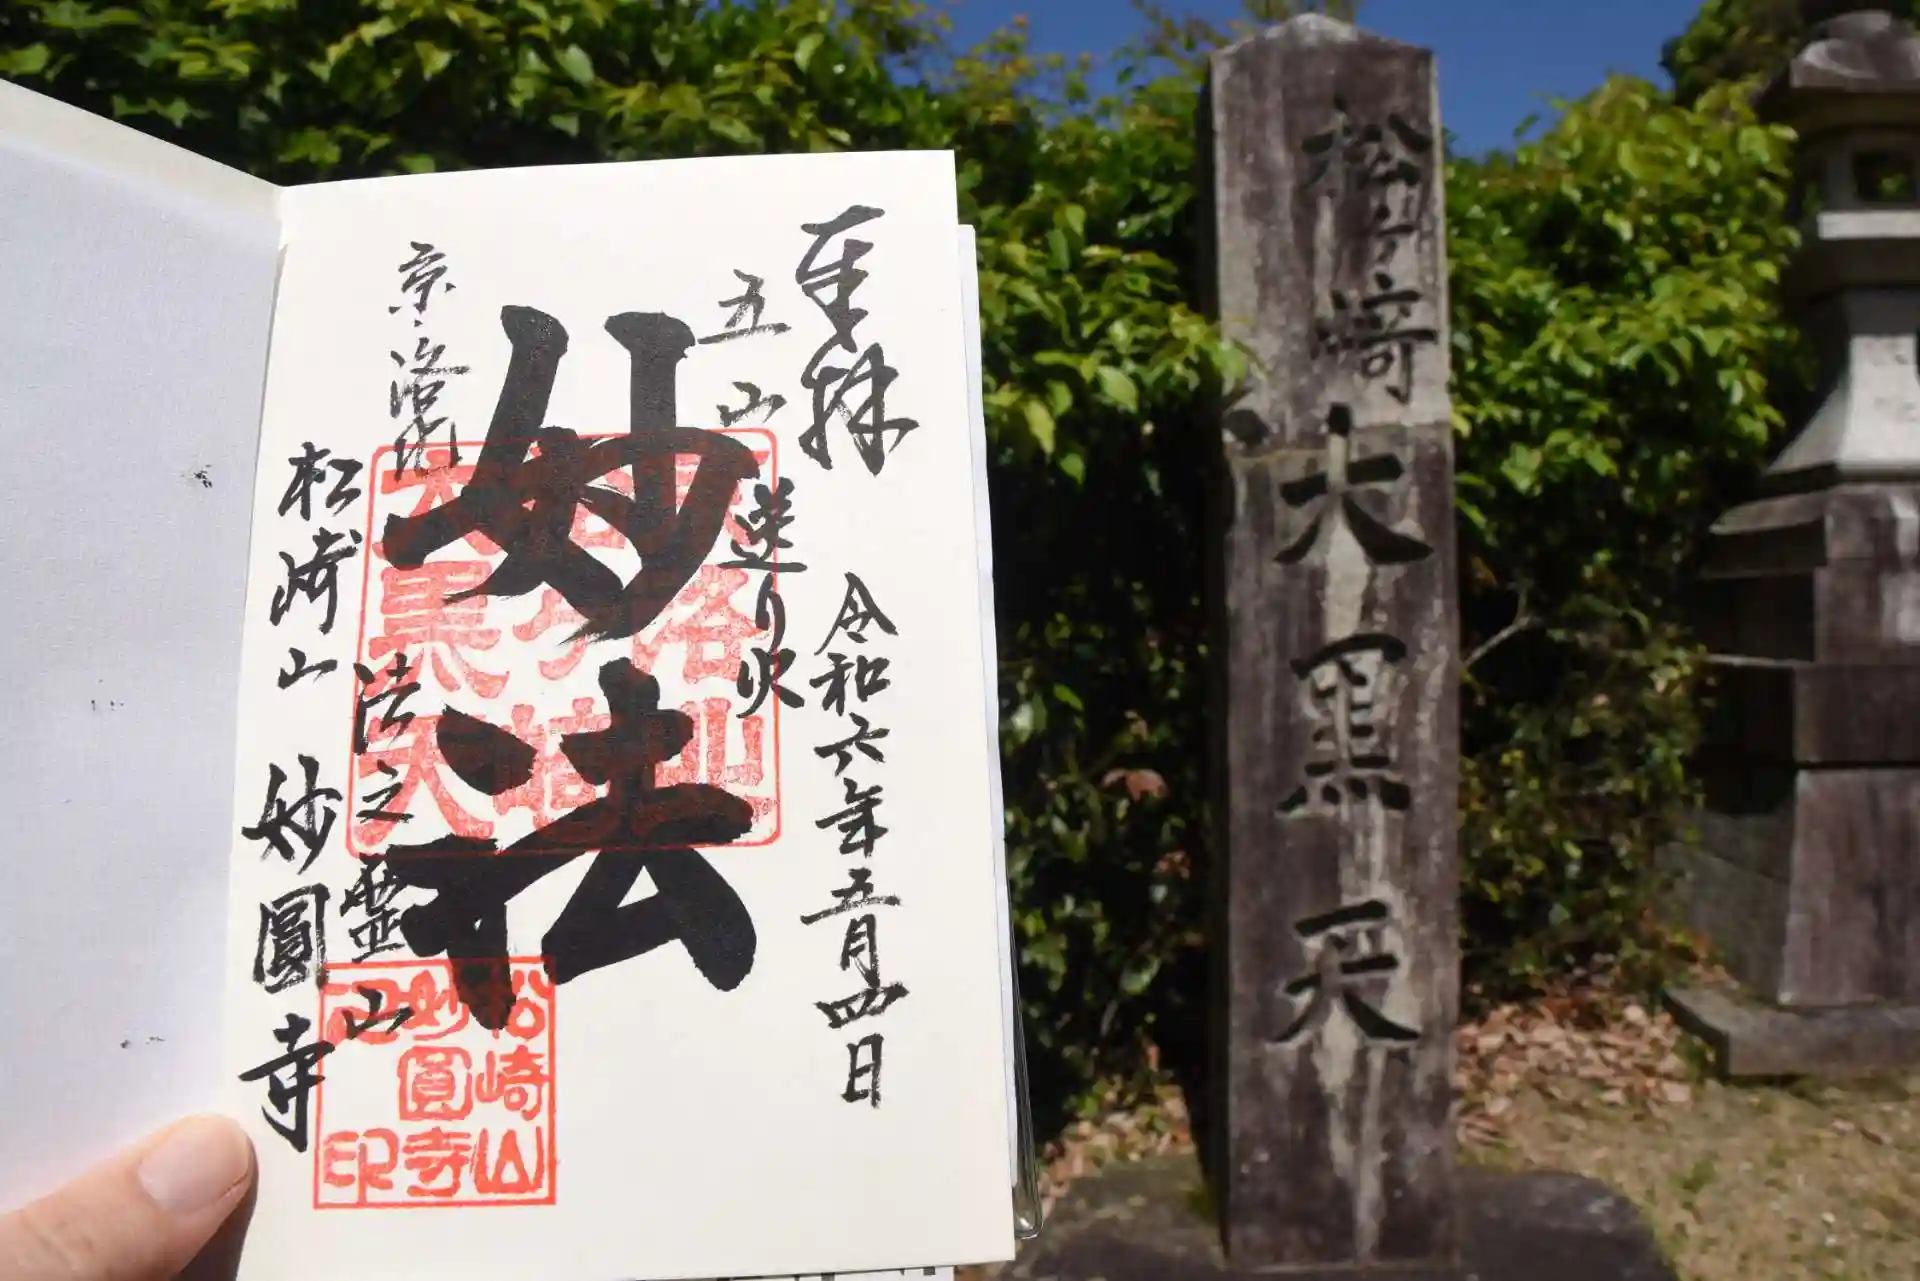 奉拝
令和六年五月四日
五山送り火
妙法
京洛北
法之霊山
松崎山 妙圓寺
京洛北
松ヶ崎
大黒天
松崎山
妙圓寺
之印
松ヶ崎大黒天